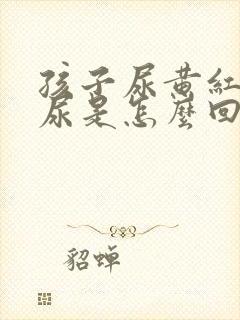 孩子尿黄紅
尿是怎麼回
貂蝉